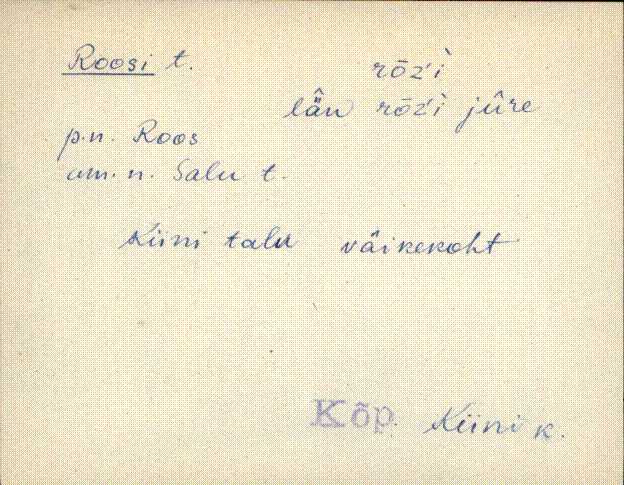 Roosi t. rōz'ì
lä̂n rōz'ì jûre
p.n. Roos
am. n. Salu t.
Kiini talu väikekoht
Kõp. Kiini k.